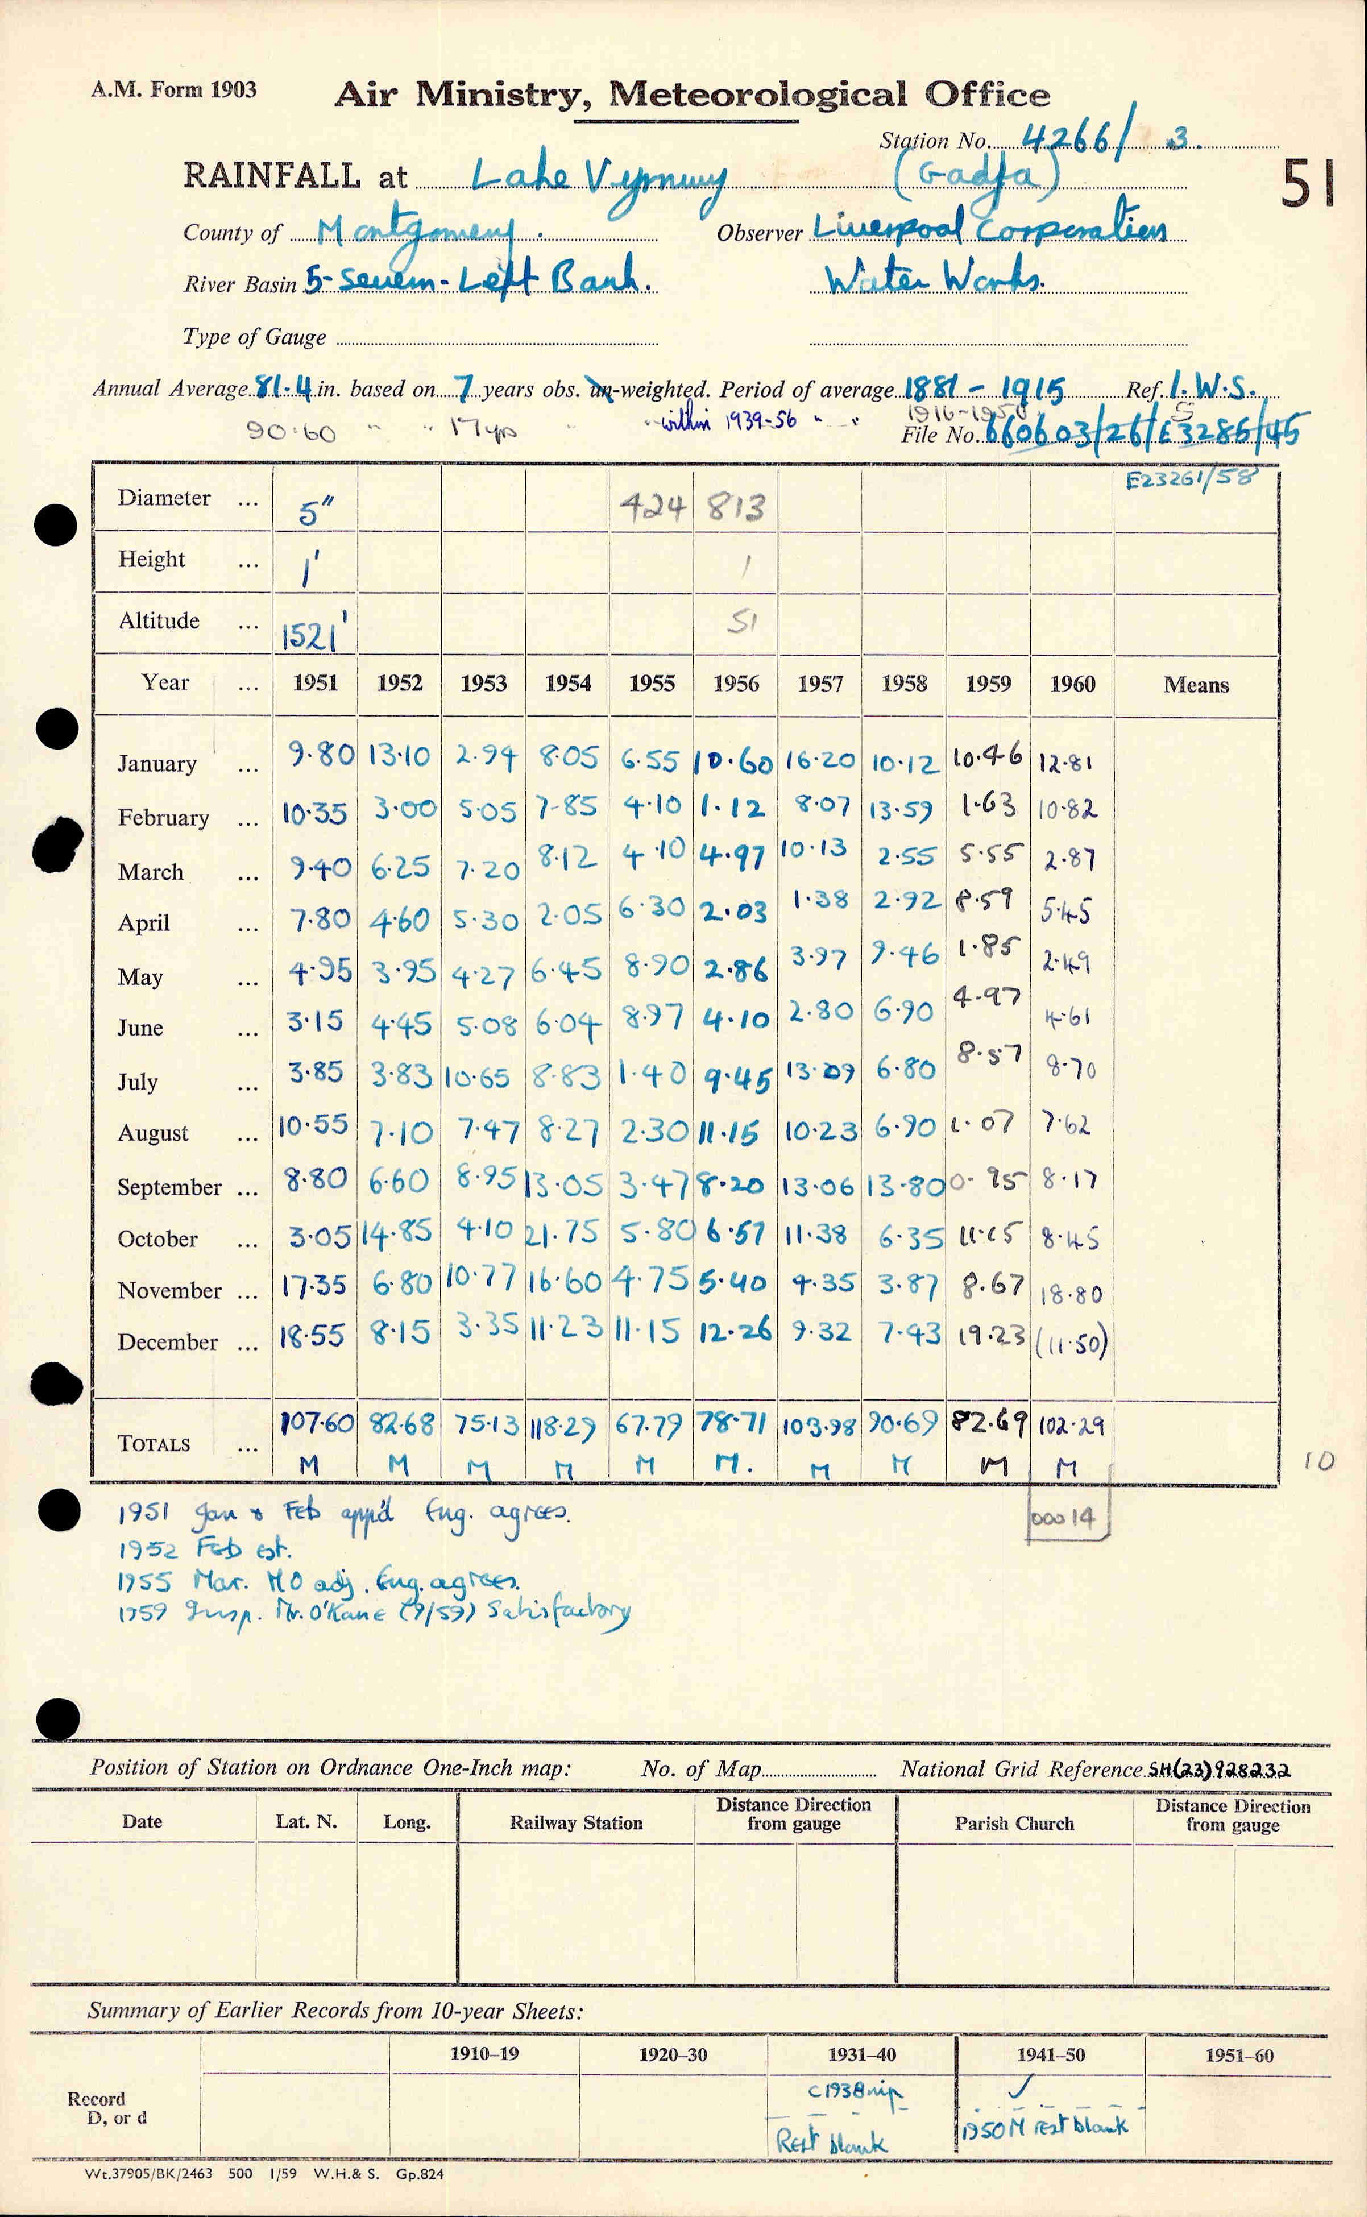 A.M. Form 1903 Air Ministry, Meteorological Office
Station No. 4266/3.
RAINFALL at Lake Vyrnwy (Gadfa) 51
County of Montgomery. Observer Liverpool Corporation
River Basin 5-Severn-Left Bank. Water Works.
Type of Gauge
Annual Average 81.4 in. based on 7 years obs. un-weighted. Period of average 1881 - 1915 Ref. I.W.S.
90.60 " " 17 yrs " within 1939-56 " " 1916-1950
File No. 660603/26/E3285/45
E23261/58
Diameter ... 5" 424 813
Height ... 1' 1
Altitude ... 1521' 51
Year ... 1951 1952 1953 1954 1955 1956 1957 1958 1959 1960 Means
January ... 9.80 13.10 2.94 8.05 6.55 10.60 16.20 10.12 10.46 12.81
February ... 10.35 3.00 5.05 7.85 4.10 1.12 8.07 13.59 1.63 10.82
March ... 9.40 6.25 7.20 8.12 4.10 4.97 10.13 2.55 5.55 2.87
April ... 7.80 4.60 5.30 2.05 6.30 2.03 1.38 2.92 8.59 5.45
May ... 4.95 3.95 4.27 6.45 8.90 2.86 3.97 9.46 1.85 2.49
June ... 3.15 4.45 5.08 6.04 8.97 4.10 2.80 6.90 4.97 4.61
July ... 3.85 3.83 10.65 8.83 1.40 9.45 13.09 6.80 8.57 8.70
August ... 10.55 7.10 7.47 8.27 2.30 11.15 10.23 6.90 1.07 7.62
September ... 8.80 6.60 8.95 13.05 3.47 8.20 13.06 13.80 0.95 8.17
October ... 3.05 14.85 4.10 21.75 5.80 6.57 11.38 6.35 11.15 8.45
November ... 17.35 6.80 10.77 16.60 4.75 5.40 4.35 3.87 8.67 18.80
December ... 18.55 8.15 3.35 11.23 11.15 12.26 9.32 7.43 19.23 (11.50)
TOTALS ... 107.60 82.68 75.13 118.29 67.79 78.71 103.98 90.69 82.69 102.29
M M M M M M. M M M M 10
1951 Jan & Feb app'd Eng. agrees. 00014
1952 Feb est.
1955 Mar. MO adj. Eng. agrees.
1959 Insp. Mr. O'Kane (9/59) Satisfactory
Position of Station on Ordnance One-Inch map: No. of Map National Grid Reference SH(23)928232
Date Lat. N. Long. Railway Station Distance Direction from gauge Parish Church Distance Direction from gauge
Summary of Earlier Records from 10-year Sheets:
1910–19 1920–30 1931–40 1941–50 1951–60
Record D, or d c1938 nip ✓
Rest blank 1950 M rest blank
Wt.37905/BK/2463 500 1/59 W.H.& S. Gp.824